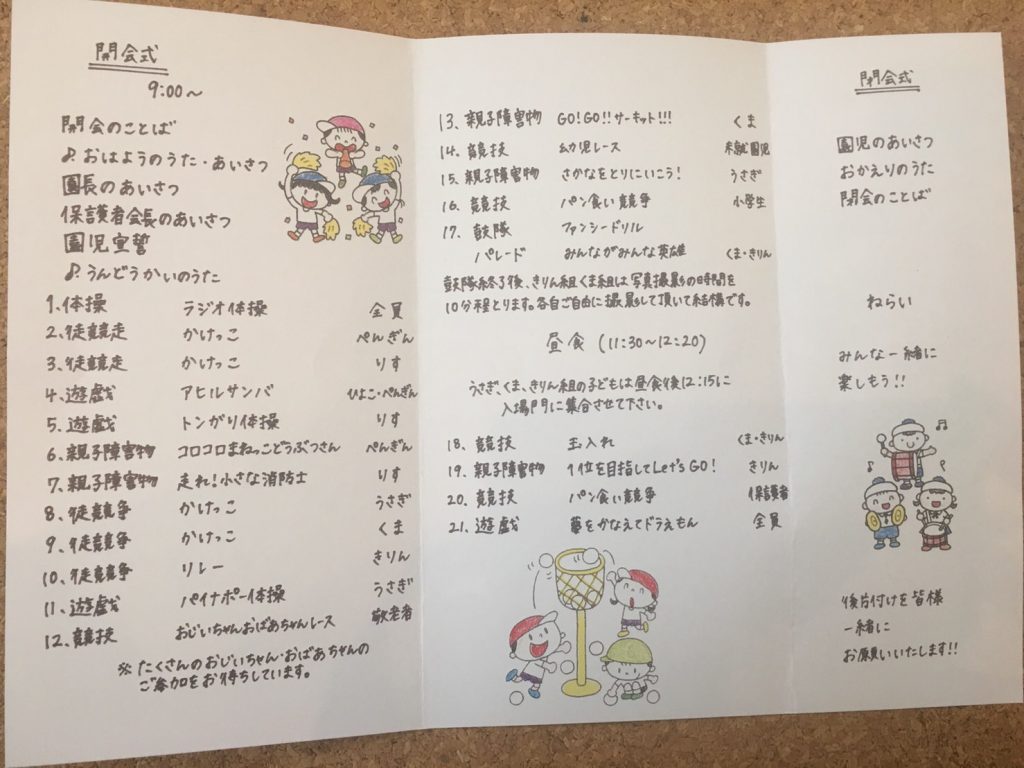 開会式
9:00〜
開会のことば
♪おはようのうた・あいさつ
園長のあいさつ
保護者会長のあいさつ
園児宣誓
♪うんどうかいのうた
1、体操 ラジオ体操 全員
2、徒競走 かけっこ ぺんぎん
3、徒競走 かけっこ りす
4、遊戯 アヒルサンバ ひよこ・ぺんぎん
5、遊戯 トンガリ体操 りす
6、親子障害物 コロコロまねっこどうぶつさん ぺんぎん
7、親子障害物 走れ!小さな消防士 りす
8、徒競争 かけっこ うさぎ
9、徒競争 かけっこ くま
10、徒競争 リレー きりん
11、遊戯 パイナポー体操 うさぎ
12、競技 おじいちゃんおばあちゃんレース 敬老者
※たくさんのおじいちゃん・おばあちゃんの
ご参加をお待ちしています。
13、親子障害物 GO!GO!!サーキット!!! くま
14、競技 幼児レース 未就園児
15、親子障害物 さかなをとりにいこう! うさぎ
16、競技 パン食い競争 小学生
17、鼓隊 ファンシードリル
パレード みんながみんな英雄 くま・きりん
鼓隊終了後、きりん組くま組は写真撮影の時間を
10分程とります。各自ご自由に撮影して頂いて結構です。
昼食 (11:30〜12:20)
うさぎ、くま、きりん組の子どもは昼食後12:15に
入場門に集合させて下さい。
18、競技 玉入れ くま・きりん
19、親子障害物 1位を目指してLet's GO! きりん
20、競技 パン食い競争 保護者
21、遊戯 夢をかなえてドラえもん 全員
閉会式
園児のあいさつ
おかえりのうた
閉会のことば
ねらい
みんな一緒に
楽しもう!!
後片付けを皆様
一緒に
お願いいたします!!